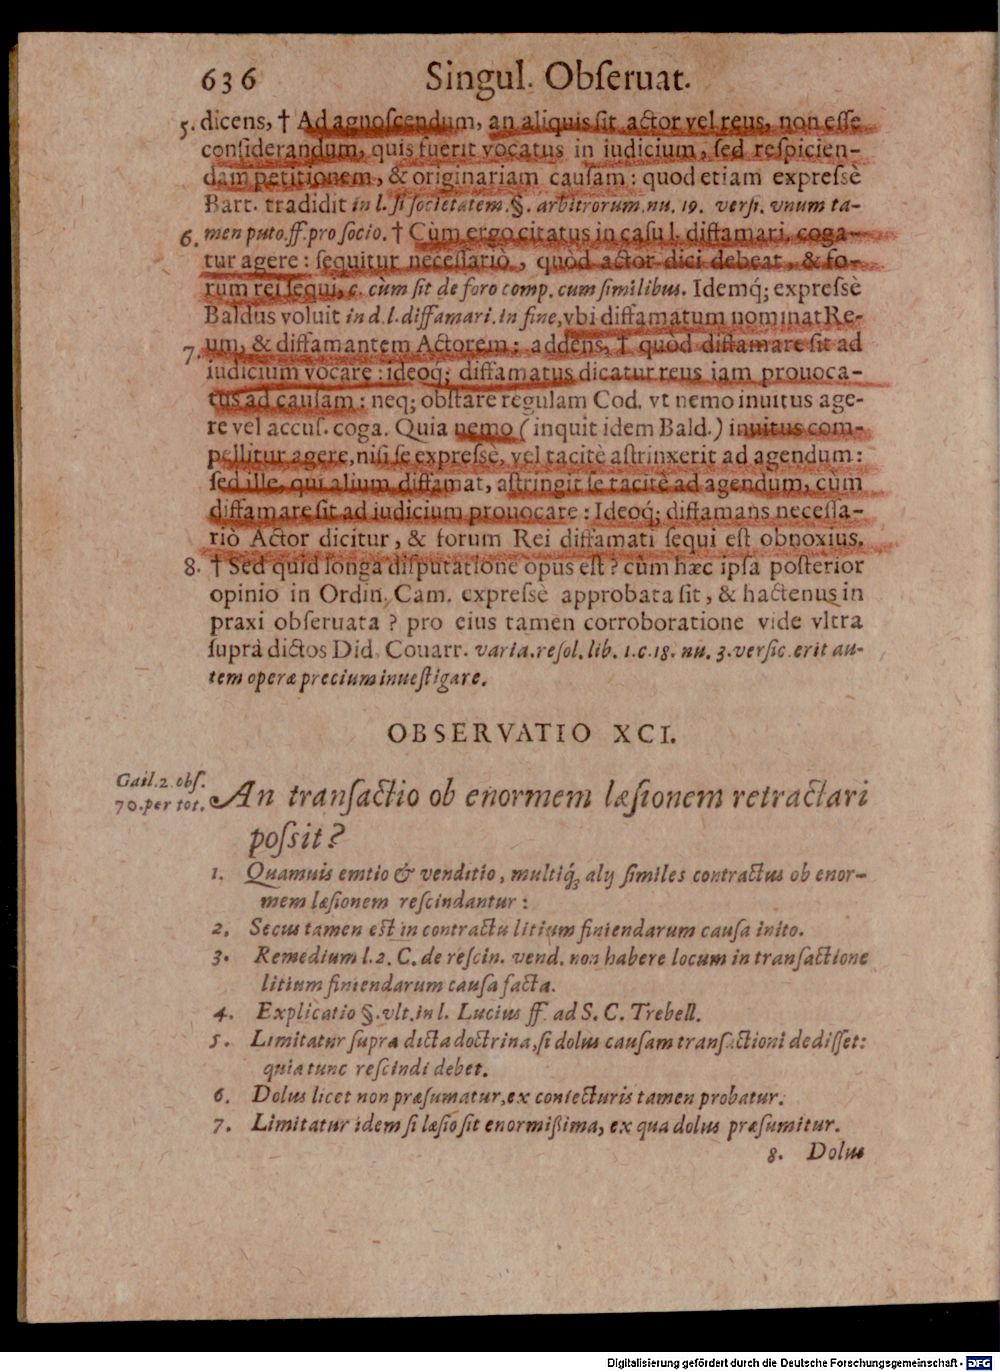 636 Singul. Obſeruat.
5. dicens, † Ad agnoſcendum, an aliquis ſit actor vel reus, non eſſe
conſiderandum, quis fuerit vocatus in iudicium, ſed reſpicien-
dam petitionem, & originariam cauſam: quod etiam expreſsè
Bart. tradidit in l. ſi ſocietatem. §. arbitrorum. nu. 19. verſi. vnum ta-
6. men puto. ff. pro ſocio. † Cùm ergo citatus in caſu l. diffamari, coga-
tur agere: ſequitur neceſſariò, quòd actor dici debeat, & fo-
rum rei ſequi, c. cùm ſit de foro comp. cum ſimilibus. Idemq́; expreſsè
Baldus voluit in d. l. diffamari. in fine, vbi diffamatum nominat Re-
7. um, & diffamantem Actorem: addens, † quòd diffamare ſit ad
iudicium vocare: ideoq́; diffamatus dicatur reus iam prouoca-
tus ad cauſam: neq; obſtare regulam Cod. vt nemo inuitus age-
re vel accuſ. coga. Quia nemo (inquit idem Bald.) inuitus com-
pellitur agere, niſi ſe expreſsè, vel tacitè aſtrinxerit ad agendum:
ſed ille, qui alium diffamat, aſtringit ſe tacitè ad agendum, cùm
diffamare ſit ad iudicium prouocare: Ideoq́; diffamans neceſſa-
riò Actor dicitur, & forum Rei diffamati ſequi eſt obnoxius.
8. † Sed quid longa diſputatione opus eſt? cùm hæc ipſa poſterior
opinio in Ordin. Cam. expreſsè approbata ſit, & hactenus in
praxi obſeruata? pro eius tamen corroboratione vide vltra
ſuprà dictos Did. Couarr. varia. reſol. lib. 1. c. 18. nu. 3. verſic. erit au-
tem operæ precium inueſtigare.
OBSERVATIO XCI.
Gail. 2. obſ.
70. per tot.
An tranſactio ob enormem læſionem retractari
poſsit?
1. Quamuis emtio & venditio, multiq́; alij ſimiles contractus ob enor-
mem læſionem reſcindantur:
2. Secus tamen eſt in contractu litium finiendarum cauſa inito.
3. Remedium l. 2. C. de reſcin. vend. non habere locum in tranſactione
litium finiendarum cauſa facta.
4. Explicatio §. vlt. in l. Lucius ff. ad S. C. Trebell.
5. Limitatur ſupra dicta doctrina, ſi dolus cauſam tranſactioni dediſſet:
quia tunc reſcindi debet.
6. Dolus licet non præſumatur, ex coniecturis tamen probatur.
7. Limitatur idem ſi læſio ſit enormißima, ex qua dolus præſumitur.
8. Dolus
Digitalisierung gefördert durch die Deutsche Forschungsgemeinschaft - DFG